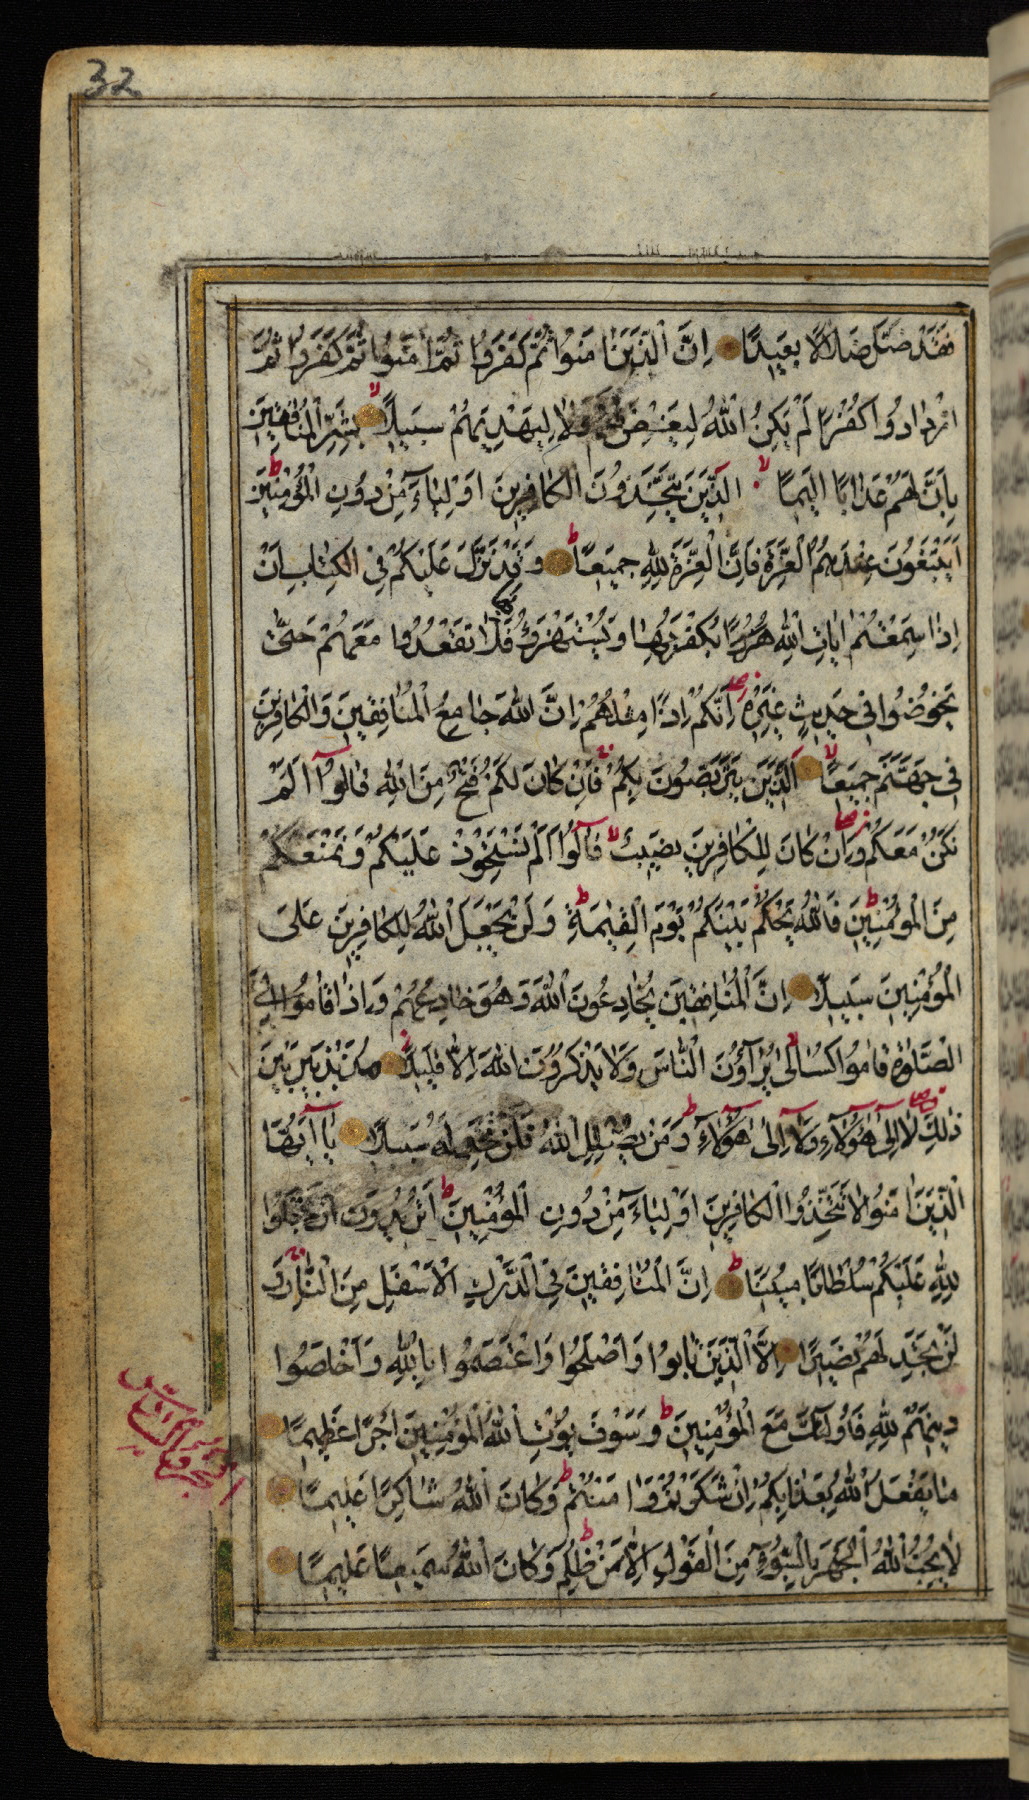 32
فَقَدْ ضَلَّ ضَلَالًا بَعِيدًا اِنَّ الَّذِينَ اٰمَنُوا ثُمَّ كَفَرُوا ثُمَّ اٰمَنُوا ثُمَّ كَفَرُوا ثُمَّ
ازْدَادُوا كُفْرًا لَمْ يَكُنِ اللّٰهُ لِيَغْفِرَ لَهُمْ وَلَا لِيَهْدِيَهُمْ سَبِيلًا بَشِّرِ الْمُنَافِقِينَ
بِاَنَّ لَهُمْ عَذَابًا اَلِيمًا الَّذِينَ يَتَّخِذُونَ الْكَافِرِينَ اَوْلِيَاءَ مِنْ دُونِ الْمُؤْمِنِينَ
اَيَبْتَغُونَ عِنْدَهُمُ الْعِزَّةَ فَاِنَّ الْعِزَّةَ لِلّٰهِ جَمِيعًا وَقَدْ نَزَّلَ عَلَيْكُمْ فِي الْكِتَابِ اَنْ
اِذَا سَمِعْتُمْ اٰيَاتِ اللّٰهِ يُكْفَرُ بِهَا وَيُسْتَهْزَؤُ بِهَا فَلَا تَقْعُدُوا مَعَهُمْ حَتّٰى
يَخُوضُوا فِي حَدِيثٍ غَيْرِهِ اِنَّكُمْ اِذًا مِثْلُهُمْ اِنَّ اللّٰهَ جَامِعُ الْمُنَافِقِينَ وَالْكَافِرِينَ
فِي جَهَنَّمَ جَمِيعًا الَّذِينَ يَتَرَبَّصُونَ بِكُمْ فَاِنْ كَانَ لَكُمْ فَتْحٌ مِنَ اللّٰهِ قَالُوا اَلَمْ
نَكُنْ مَعَكُمْ وَاِنْ كَانَ لِلْكَافِرِينَ نَصِيبٌ قَالُوا اَلَمْ نَسْتَحْوِذْ عَلَيْكُمْ وَنَمْنَعْكُمْ
مِنَ الْمُؤْمِنِينَ فَاللّٰهُ يَحْكُمُ بَيْنَكُمْ يَوْمَ الْقِيٰمَةِ وَلَنْ يَجْعَلَ اللّٰهُ لِلْكَافِرِينَ عَلَى
الْمُؤْمِنِينَ سَبِيلًا اِنَّ الْمُنَافِقِينَ يُخَادِعُونَ اللّٰهَ وَهُوَ خَادِعُهُمْ وَاِذَا قَامُوا اِلَى
الصَّلٰوةِ قَامُوا كُسَالٰى يُرَاؤُنَ النَّاسَ وَلَا يَذْكُرُونَ اللّٰهَ اِلَّا قَلِيلًا مُذَبْذَبِينَ بَيْنَ
ذٰلِكَ لَا اِلٰى هٰؤُلَاءِ وَلَا اِلٰى هٰؤُلَاءِ وَمَنْ يُضْلِلِ اللّٰهُ فَلَنْ تَجِدَ لَهُ سَبِيلًا يَا اَيُّهَا
الَّذِينَ اٰمَنُوا لَا تَتَّخِذُوا الْكَافِرِينَ اَوْلِيَاءَ مِنْ دُونِ الْمُؤْمِنِينَ اَتُرِيدُونَ اَنْ تَجْعَلُوا
لِلّٰهِ عَلَيْكُمْ سُلْطَانًا مُبِينًا اِنَّ الْمُنَافِقِينَ فِي الدَّرْكِ الْاَسْفَلِ مِنَ النَّارِ وَ
لَنْ تَجِدَ لَهُمْ نَصِيرًا اِلَّا الَّذِينَ تَابُوا وَاَصْلَحُوا وَاعْتَصَمُوا بِاللّٰهِ وَاَخْلَصُوا
دِينَهُمْ لِلّٰهِ فَاُولٰئِكَ مَعَ الْمُؤْمِنِينَ وَسَوْفَ يُؤْتِ اللّٰهُ الْمُؤْمِنِينَ اَجْرًا عَظِيمًا
مَا يَفْعَلُ اللّٰهُ بِعَذَابِكُمْ اِنْ شَكَرْتُمْ وَاٰمَنْتُمْ وَكَانَ اللّٰهُ شَاكِرًا عَلِيمًا
لَا يُحِبُّ اللّٰهُ الْجَهْرَ بِالسُّوءِ مِنَ الْقَوْلِ اِلَّا مَنْ ظُلِمَ وَكَانَ اللّٰهُ سَمِيعًا عَلِيمًا